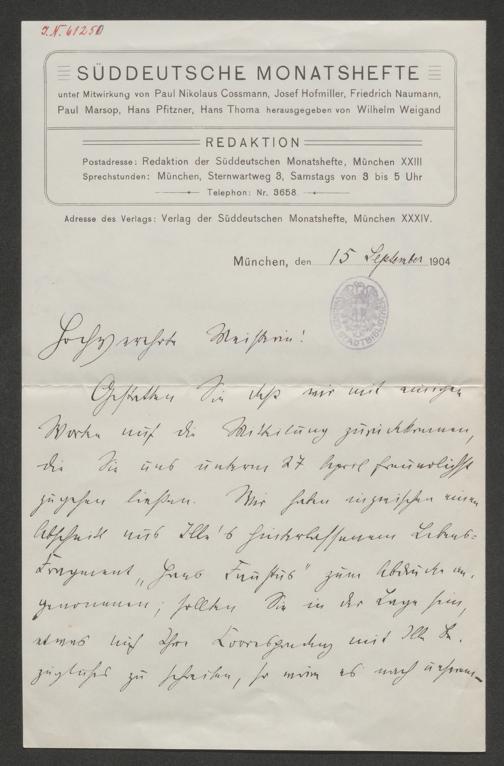 I.N. 61251
SÜDDEUTSCHE MONATSHEFTE
unter Mitwirkung von Paul Nikolaus Cossmann, Josef Hofmiller, Friedrich Naumann,
Paul Marsop, Hans Pfitzner, Hans Thoma herausgegeben von Wilhelm Weigand
REDAKTION
Postadresse: Redaktion der Süddeutschen Monatshefte, München XXIII
Sprechstunden: München, Sternwartweg 3, Samstags von 3 bis 5 Uhr
Telephon: Nr. 3658.
Adresse des Verlags: Verlag der Süddeutschen Monatshefte, München XXXIV.
München, den 15 September 1904
Hochverehrte Meisterin!
Gestatten Sie daß wir mit einigen
Worten auf die Mitteilung zurückkommen,
die Sie uns unterm 27 April freundlichst
zugehen ließen. Wir haben inzwischen einen
Abschnitt aus Ille's hinterlassenem Lebens-
Fragment „Hans Faustus" zum Abdrucke an-
genommen; sollten Sie in der Lage sein,
etwas auf Ihre Correspondenz mit Ille Be-
zügliches zu schreiben, so wäre es nach unserem